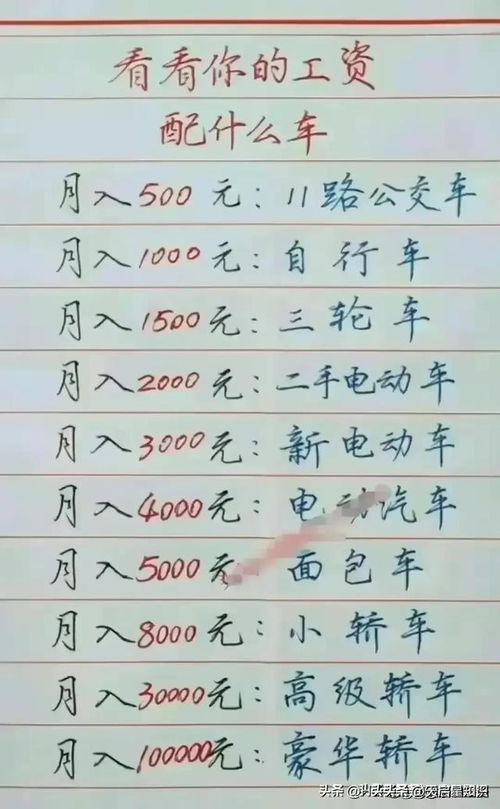 看看你的工资
配什么车
月入500元:11路公交车
月入1000元:自行车
月入1500元:三轮车
月入2000元:二手电动车
月入3000元:新电动车
月入4000元:电动汽车
月入5000元 面包车
月入8000元:小轿车
月入30000元:高级轿车
月入100000元:豪华轿车
头条